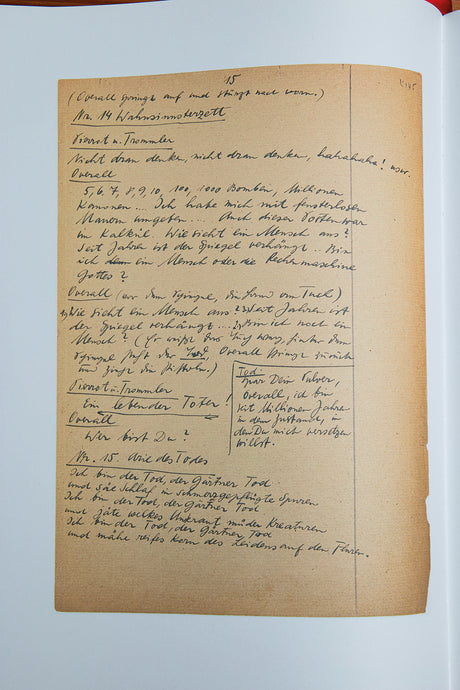 15
(Overall springt auf und stürzt nach vorn.)
Nr. 14 Wahnsinnsterzett
Pierrot u. Trommler
Nicht dran denken, nicht dran denken, hahahaha! usw.
Overall
5, 6, 7, 8, 9, 10, 100, 1000 Bomben, Millionen
Kanonen... Ich habe mich mit fensterlosen
Mauern umgeben... Auch dieser Posten war
in Kalkül. Wie sieht ein Mensch aus?
Seit Jahren ist der Spiegel verhängt.. Bin
ich denn ein Mensch oder die Rechenmaschine
Gottes?
Overall (vor dem Spiegel, die Hand am Tuch)
1) Wie sieht ein Mensch aus? 2) Seit Jahren ist
der Spiegel verhängt... 3) Bin ich noch ein
Mensch? (Er reißt das Tuch weg, hinter dem
Spiegel steht der Tod, Overall springt zurück
und zieht die Pistole.)
Pierrot u. Trommler
Ein lebender Toter!
Overall
Wer bist Du?
Tod:
Spar Dein Pulver,
Overall, ich bin
seit Millionen Jahren
in dem Zustand, in
den Du mich versetzen
willst.
Nr. 15. Arie des Todes
Ich bin der Tod, der Gärtner Tod
und säe Schlaf in schmerzgepflügte Spuren
Ich bin der Tod, der Gärtner Tod
und jäte welkes Unkraut müder Kreaturen
Ich bin der Tod, der Gärtner Tod
und mähe reifes Korn des Leidens auf den Fluren.